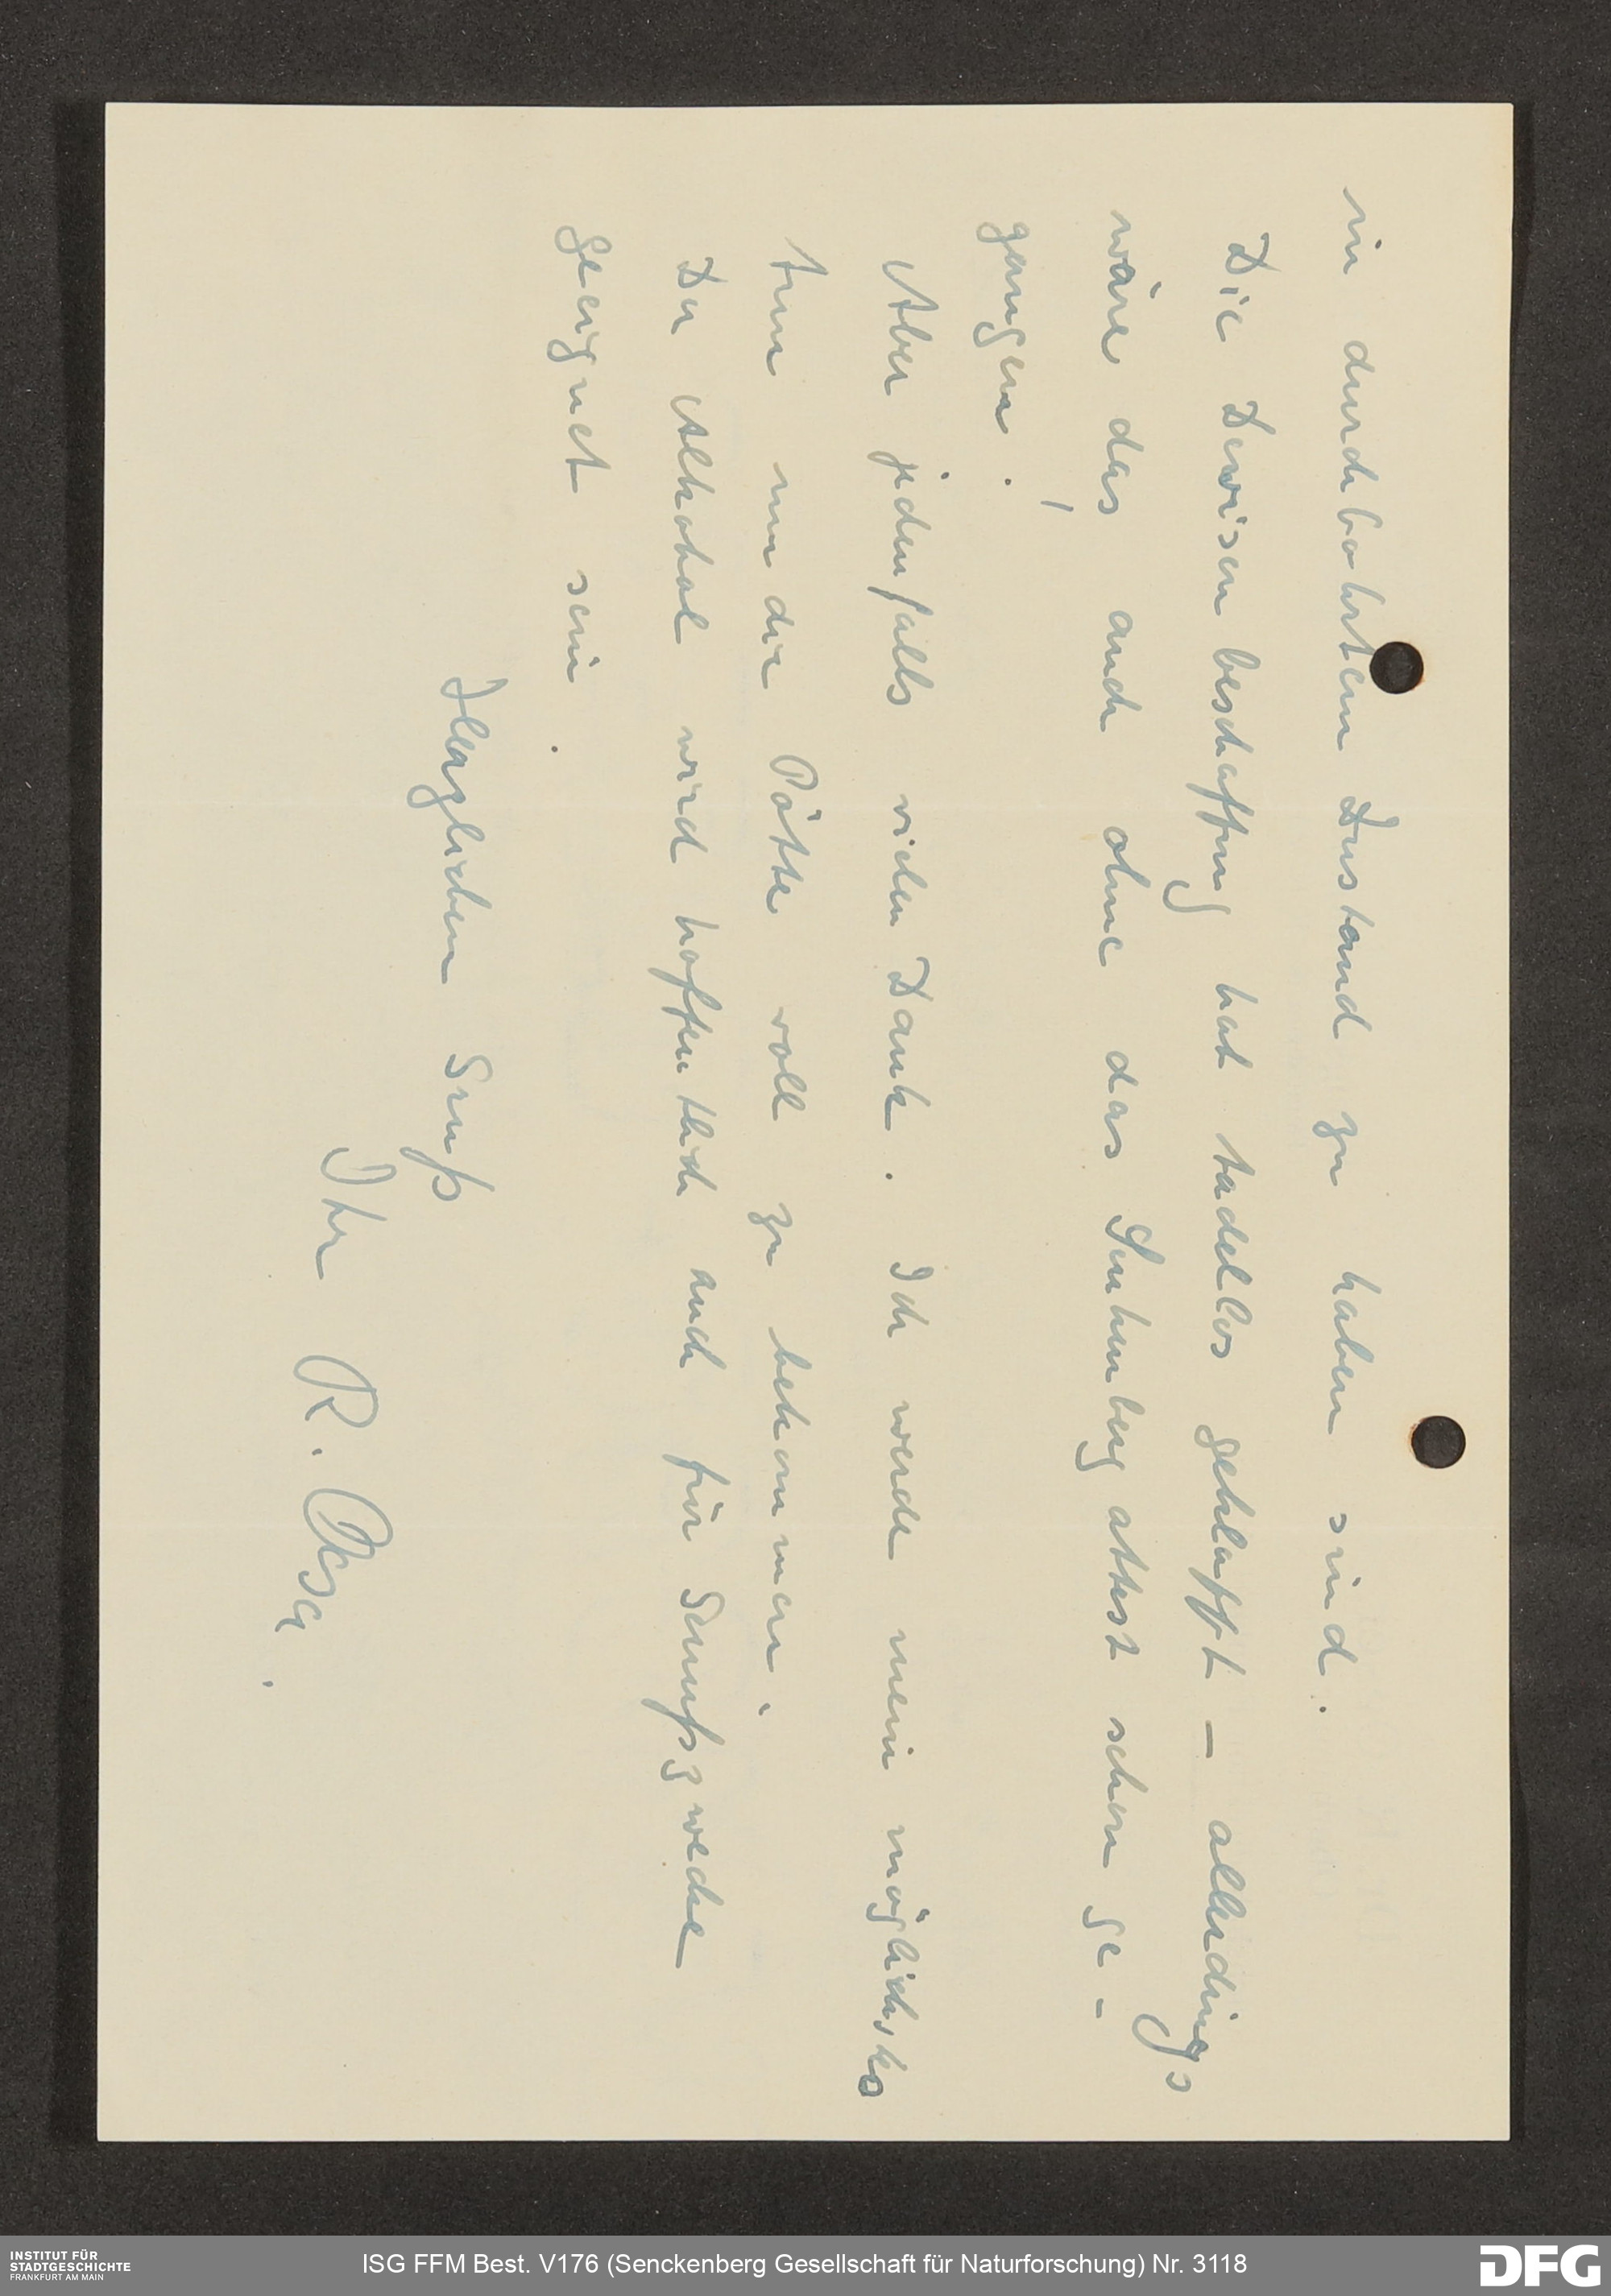 in durchbohrtem Zustand zu haben sind.
Die Devisenbeschaffung hat tadellos geklappt – allerdings
wäre das auch ohne das Senkenbergattest schon ge-
gangen.
Aber jedenfalls vielen Dank. Ich werde mein möglichstes
tun um die Pötte voll zu bekommen.
Der Alkohol wird hoffentlich auch für Genußzwecke
geeignet sein.
Herzlichen Gruß
Ihr R.
INSTITUT FÜR
STADTGESCHICHTE
FRANKFURT AM MAIN
ISG FFM Best. V176 (Senckenberg Gesellschaft für Naturforschung) Nr. 3118
DFG